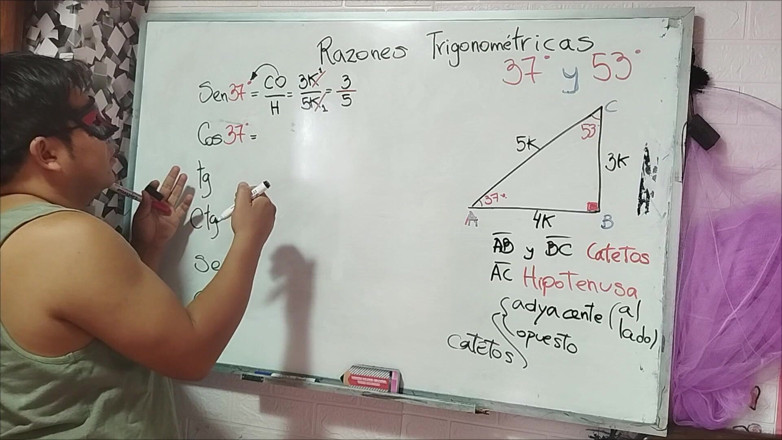 Razones Trigonométricas
37° y 53°
Sen37° = CO/H = 3K/5K = 3/5
Cos37° =
tg
Ctg
Se
C
53°
5K
3K
37°
A
4K
B
AB y BC Catetos
AC Hipotenusa
Catetos { adyacente (al lado)
opuesto